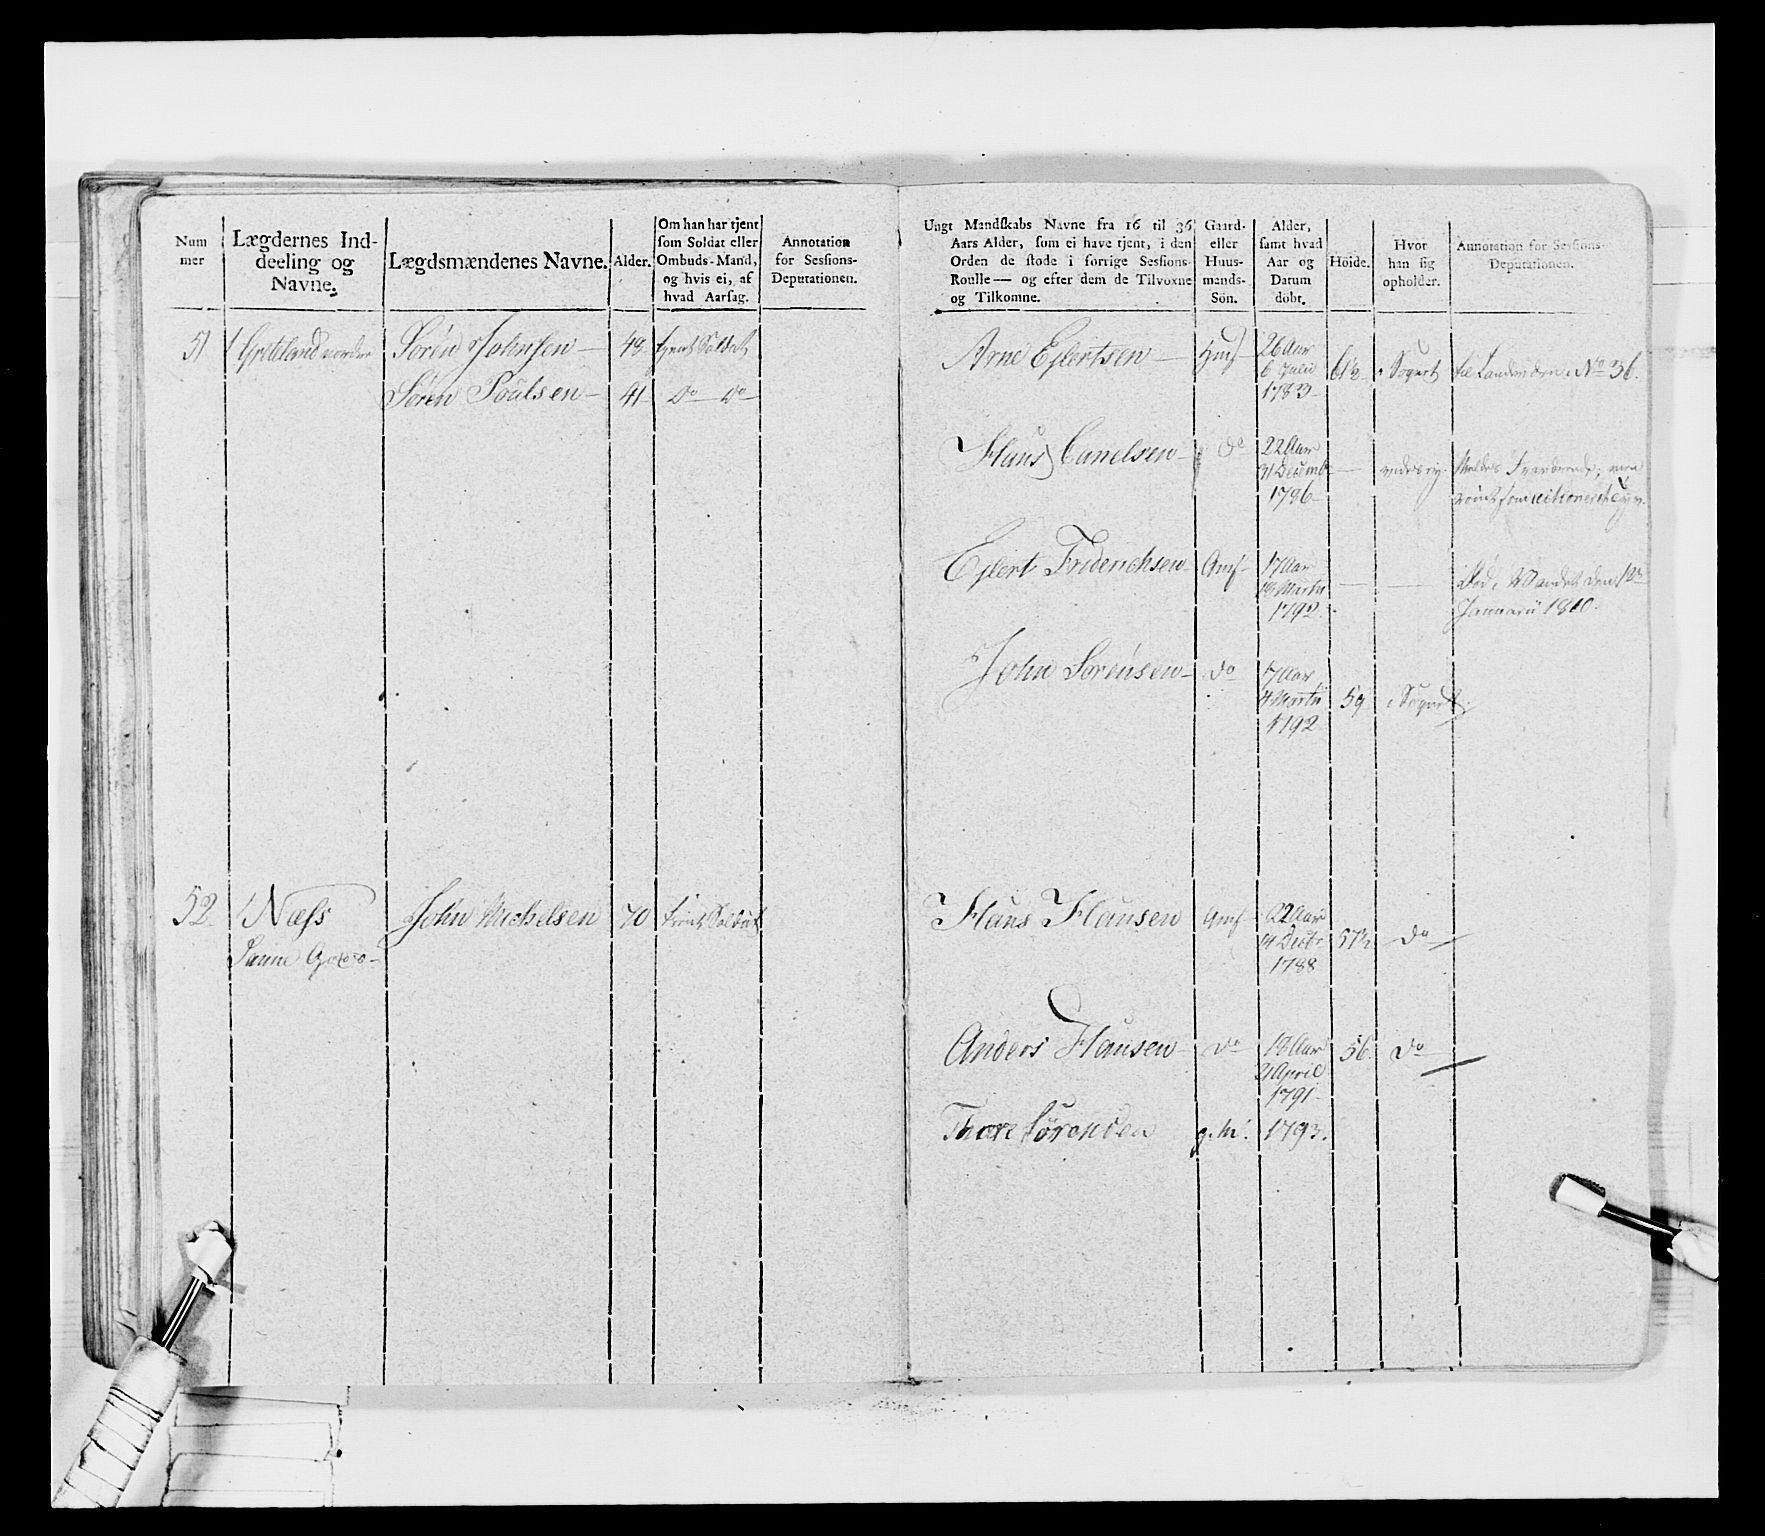 Num
mer
Lægdernes Ind-
deeling og
Navne.
Lægdsmændenes Navne.
Alder.
Om han har tjent
som Soldat eller
Ombuds-Mand,
og hvis ei, af
hvad Aarsag.
Annotation
for Sessions-
Deputationen.
51
Sören Johnsen 49 tjent Soldat
Sören Poulsen 41 Do Do
52 Næss John Michelsen 70 tient Soldat
Ungt Mandskabs Navne fra 16 til 36
Aars Alder, som ei have tjent, i den
Orden de stode i forrige Sessions-
Roulle — og efter dem de Tilvoxne
og Tilkomne.
Gaard-
eller
Huus-
mands-
Sön.
Alder,
samt hvad
Aar og
Datum
döbt.
Höide.
Hvor
han sig
opholder.
Annotation for Sessions-
Deputationen.
Arne Ejlertsen Hmf 26 Aar
6 Julii 61½ i Sognet til Landeværn No 36.
1783
Hans Do 22 Aar
31 Decemb
1786
Ejlert Friderichsen Gmf 17 Aar
Martii Död i Vandet den
1792 Januarii 1810.
John Sörensen Do 17 Aar
Martii 59 i Sognet
1792
Hans Hansen Gmf 22 Aar
14 Decbr 57½ Do
1788
Anders Hansen Do 19 Aar 56 Do
21 April
1791
Thore Sörensen g.m. 1793.